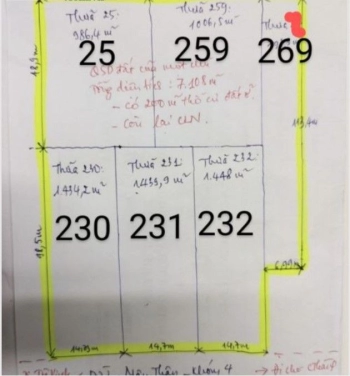 Thửa 25:
986,4 m²
25
Thửa 259:
1006,5 m²
259
Thửa
269
QSD đất của
Tổng diện tích: 7.108 m²
- có 200 m² thổ cư đất ở.
- Còn lại CLN.
113,4m
Thửa 230:
1434,2 m²
230
Thửa 231:
1433,9 m²
231
Thửa 232:
1.448 m²
232
98,5m
6,99m
14,73m
14,7m
14,7m
Khóm 4
→ đi chợ